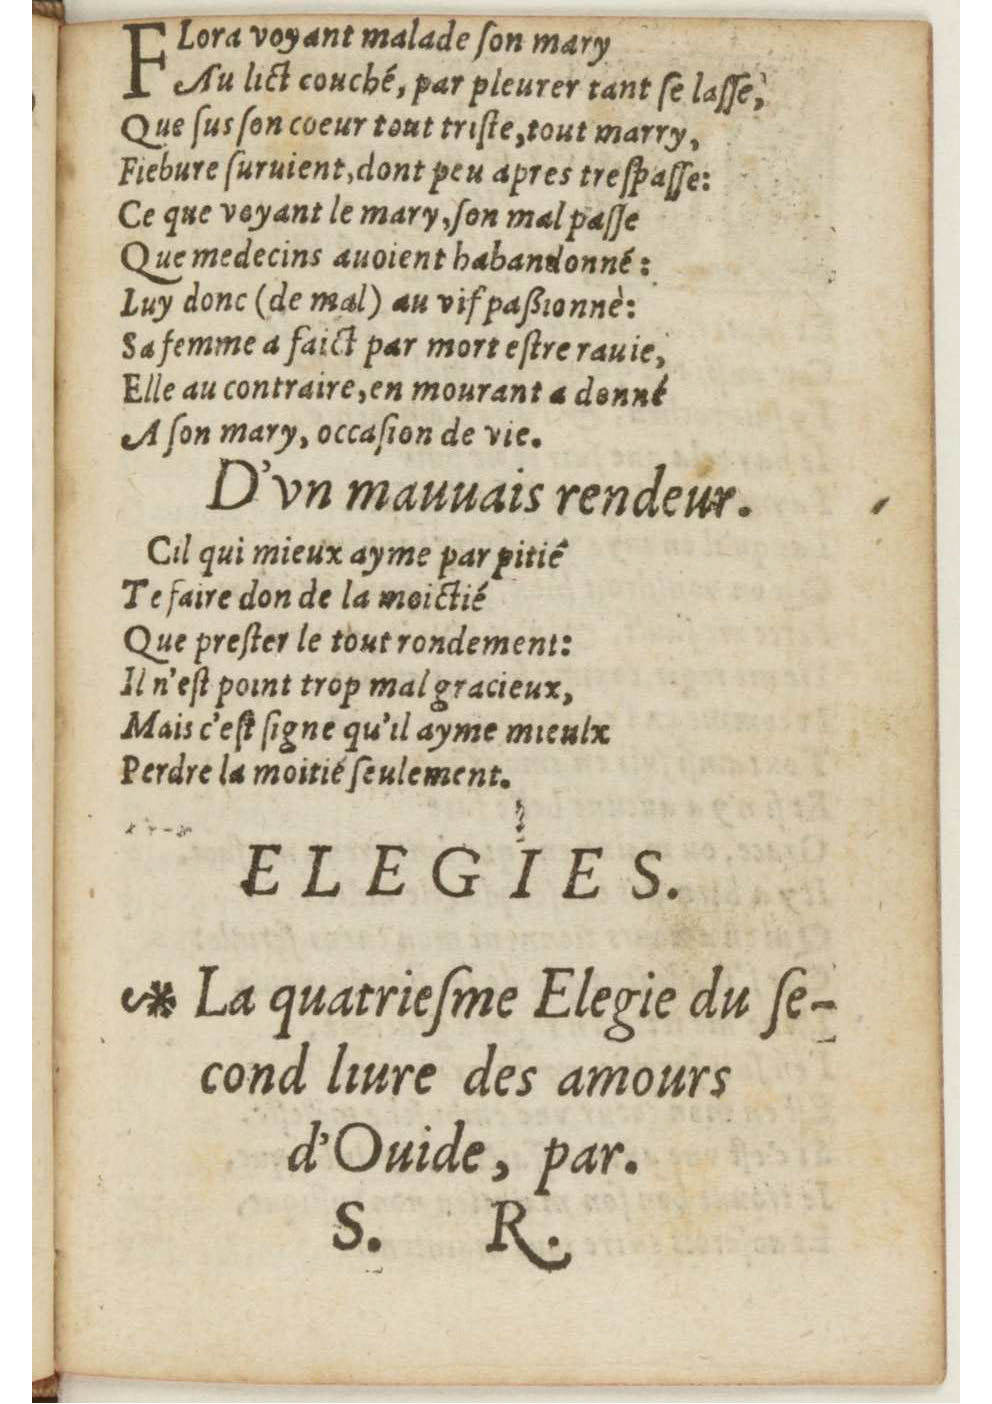 FLora voyant malade ſon mary
Au lict couché, par pleurer tant ſe laſſe,
Que ſus ſon coeur tout triſte, tout marry,
Fiebure ſuruient, dont peu apres treſpaſſe:
Ce que voyant le mary, ſon mal paſſe
Que medecins auoient habandonné:
Luy donc (de mal) au vif paßionnè:
Sa femme a faict par mort eſtre rauie,
Elle au contraire, en mourant a donné
A ſon mary, occaſion de vie.
D'vn mauuais rendeur.
Cil qui mieux ayme par pitié
Te faire don de la moictié
Que preſter le tout rondement:
Il n'eſt point trop mal gracieux,
Mais c'eſt ſigne qu'il ayme mieulx
Perdre la moitié ſeulement.
ELEGIES.
La quatrieſme Elegie du ſe-
cond liure des amours
d'Ouide, par.
S. R.